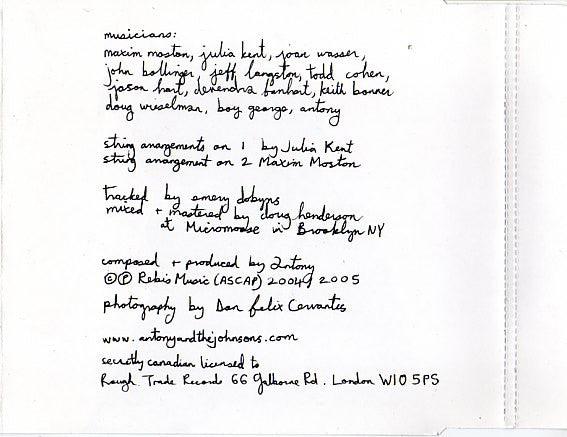 musicians:
maxim moston, julia kent, joan wasser,
john bollinger, jeff langston, todd cohen,
jason hart, devendra banhart, keith bonner
doug wieselman, boy george, antony
string arrangements on 1 by Julia Kent
string arrangement on 2 Maxim Moston
tracked by emery dobyns
mixed + mastered by doug henderson
at Micromoose in Brooklyn NY
composed + produced by Antony
©℗ Rebis Music (ASCAP) 2004, 2005
photography by Don felix Cervantes
www.antonyandthejohnsons.com
secretly canadian licensed to
Rough Trade Records 66 Golborne Rd. London W10 5PS